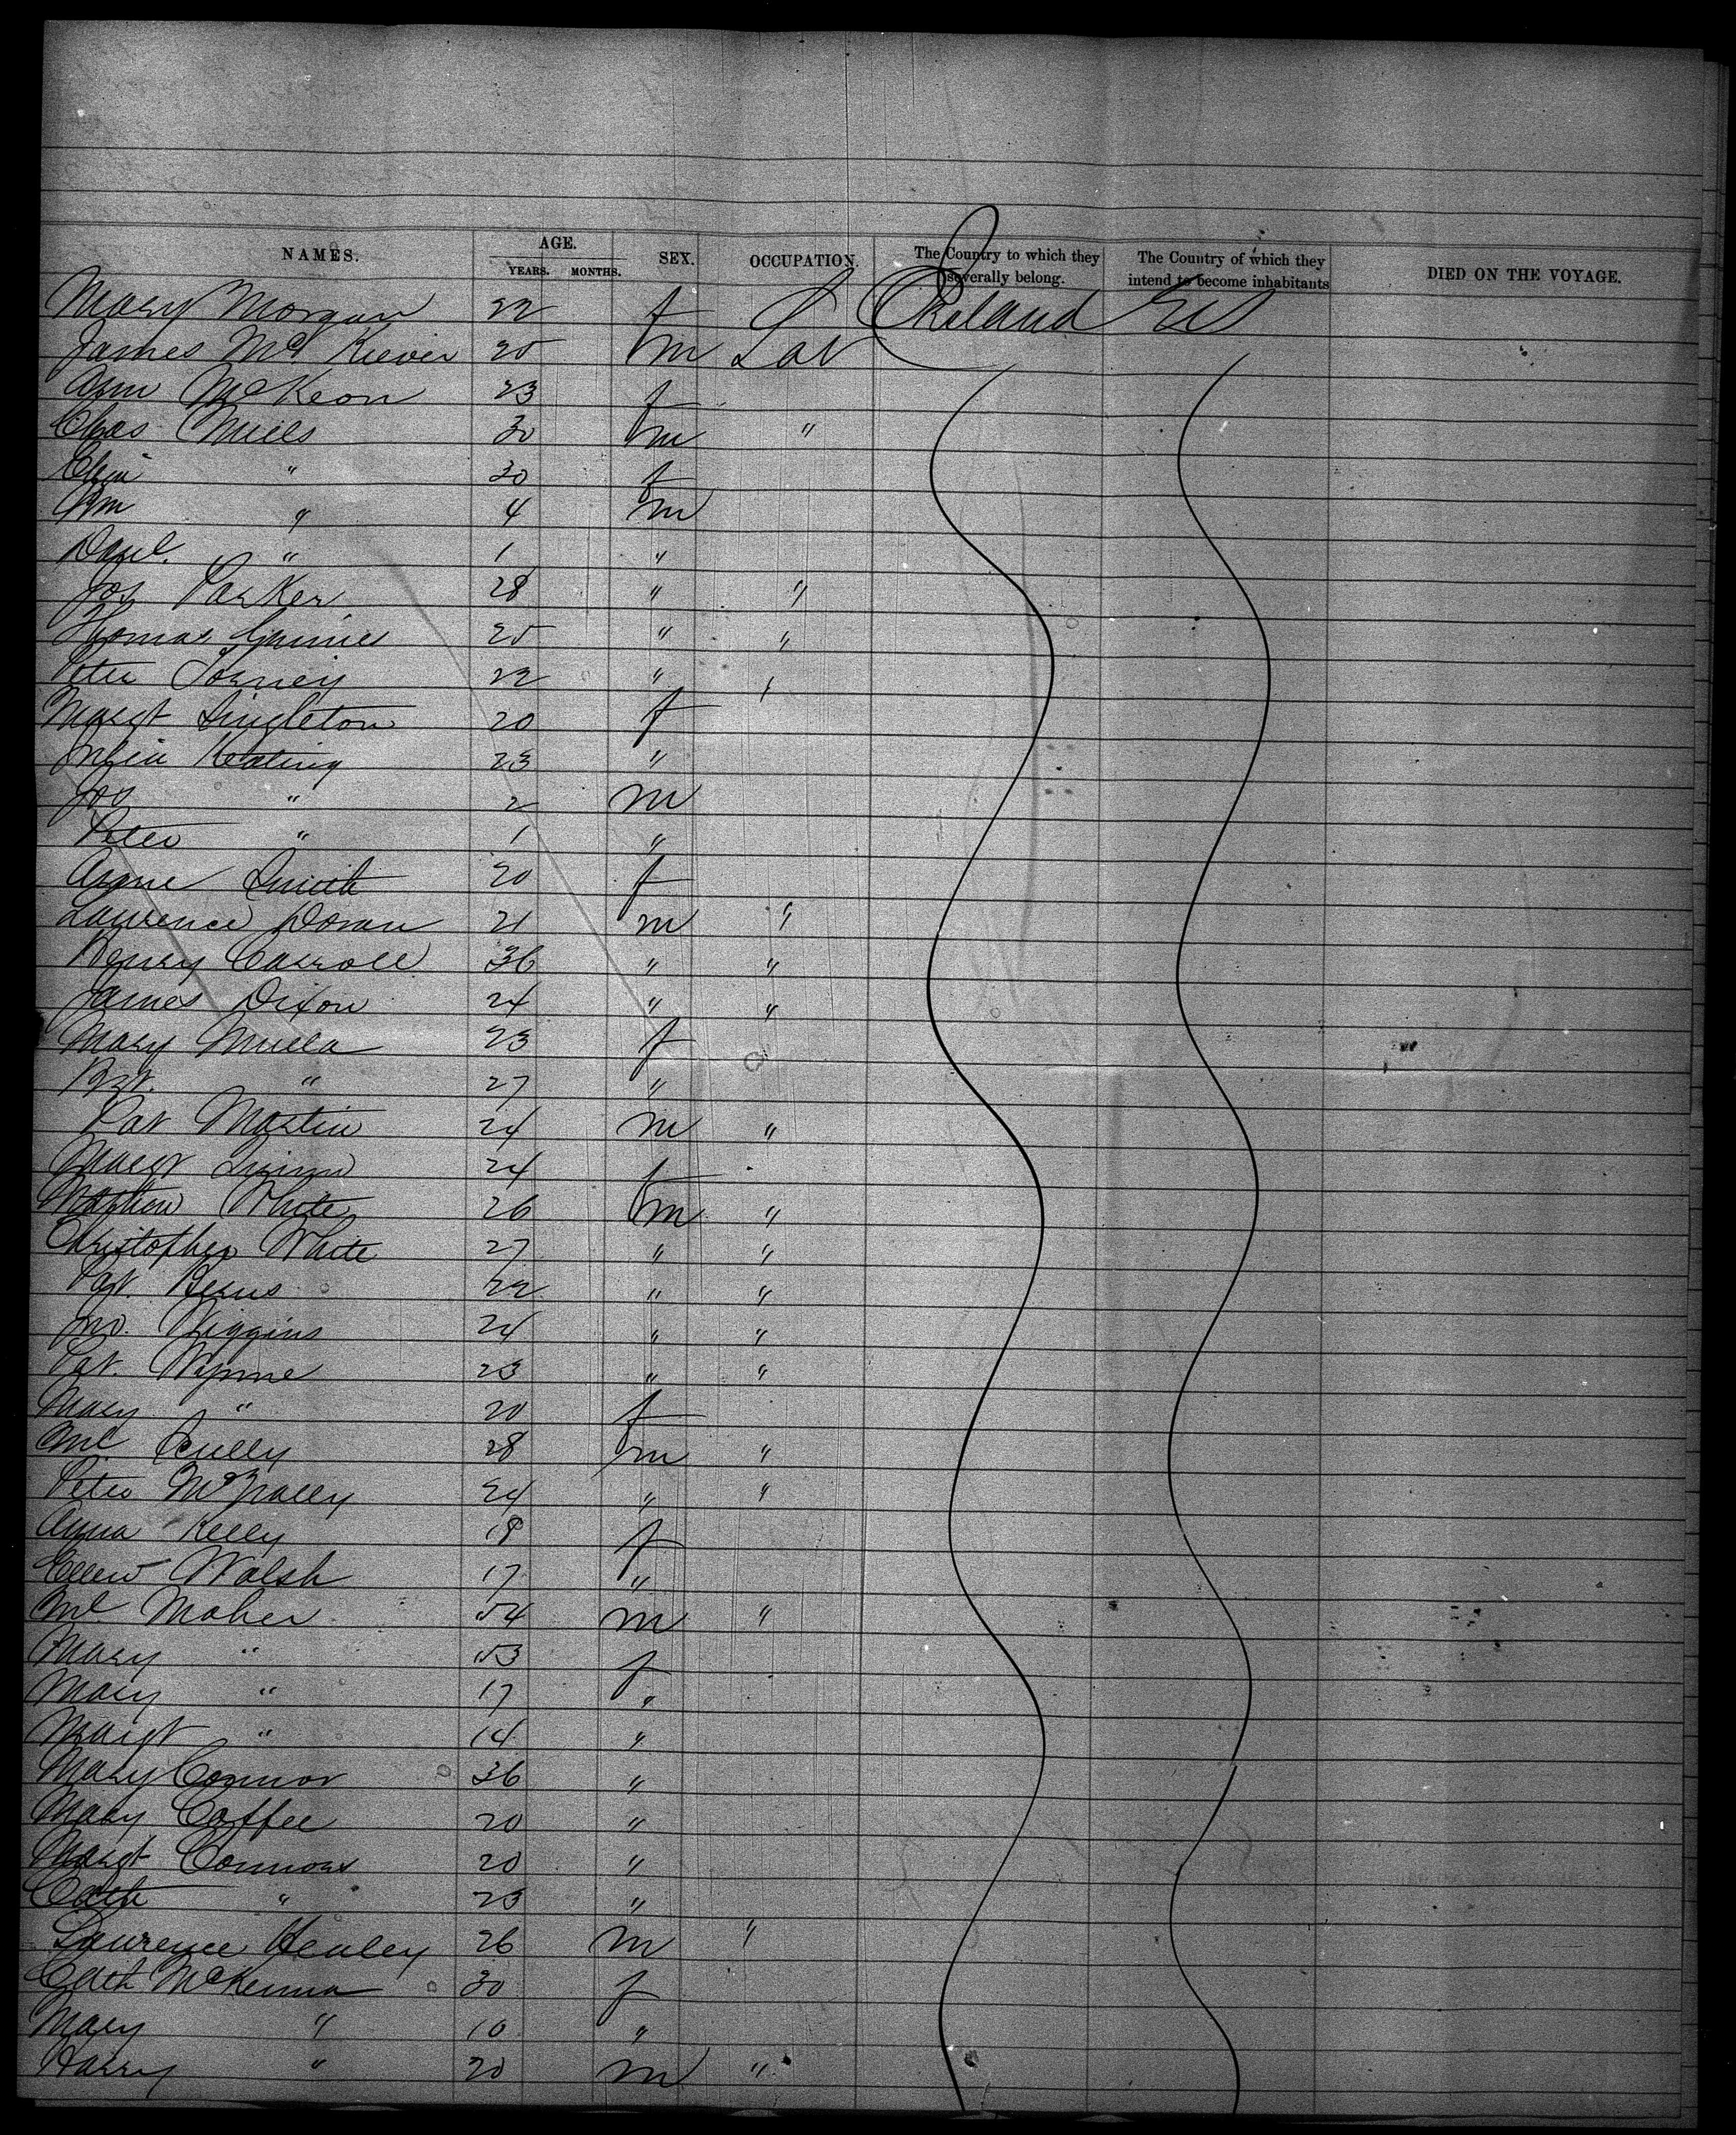 NAMES. AGE. SEX. OCCUPATION. The Country to which they severally belong. The Country of which they intend to become inhabitants DIED ON THE VOYAGE.
YEARS. MONTHS.
Mary Morgan 22 f Ireland US
James Mc Kiever 25 m Lab
Ann McKeon 23 f
Chas Mills 30 m "
Eliza " 30 f
Wm " 4 m
Danl. " 1 "
Jos Parker 28 " "
Thomas Grimes 25 " "
Peter Torney 22 " "
Margt Singleton 20 f
Julia Keating 23 "
Jos " 2 m
Peter " 1 "
Annie Smith 20 f
Lawrence Doran 21 m "
Henry Carroll 36 " "
James Dixon 24 " "
Mary Mulla 23 f
Bgt. " 27 "
Pat Martin 24 m "
Margt Quinn 24 f
Mathew White 26 m "
Christopher White 27 " "
Pat. Berns 22 " "
Jno. Higgins 24 " "
Pat. Wynne 23 " "
Mary " 20 f
Ml Scully 28 m "
Peter McNally 24 " "
Anna Kelly 18 f
Ellen Walsh 17 "
Ml Maher 54 m "
Mary " 53 f
Mary " 17 "
Margt " 14 "
Mary Connor 36 "
Mary Coffee 20 "
Margt Connors 20 "
Cath " 23 "
Lawrence Henley 26 m "
Cath McKenna 30 f
Mary " 10 "
Harry " 20 m "